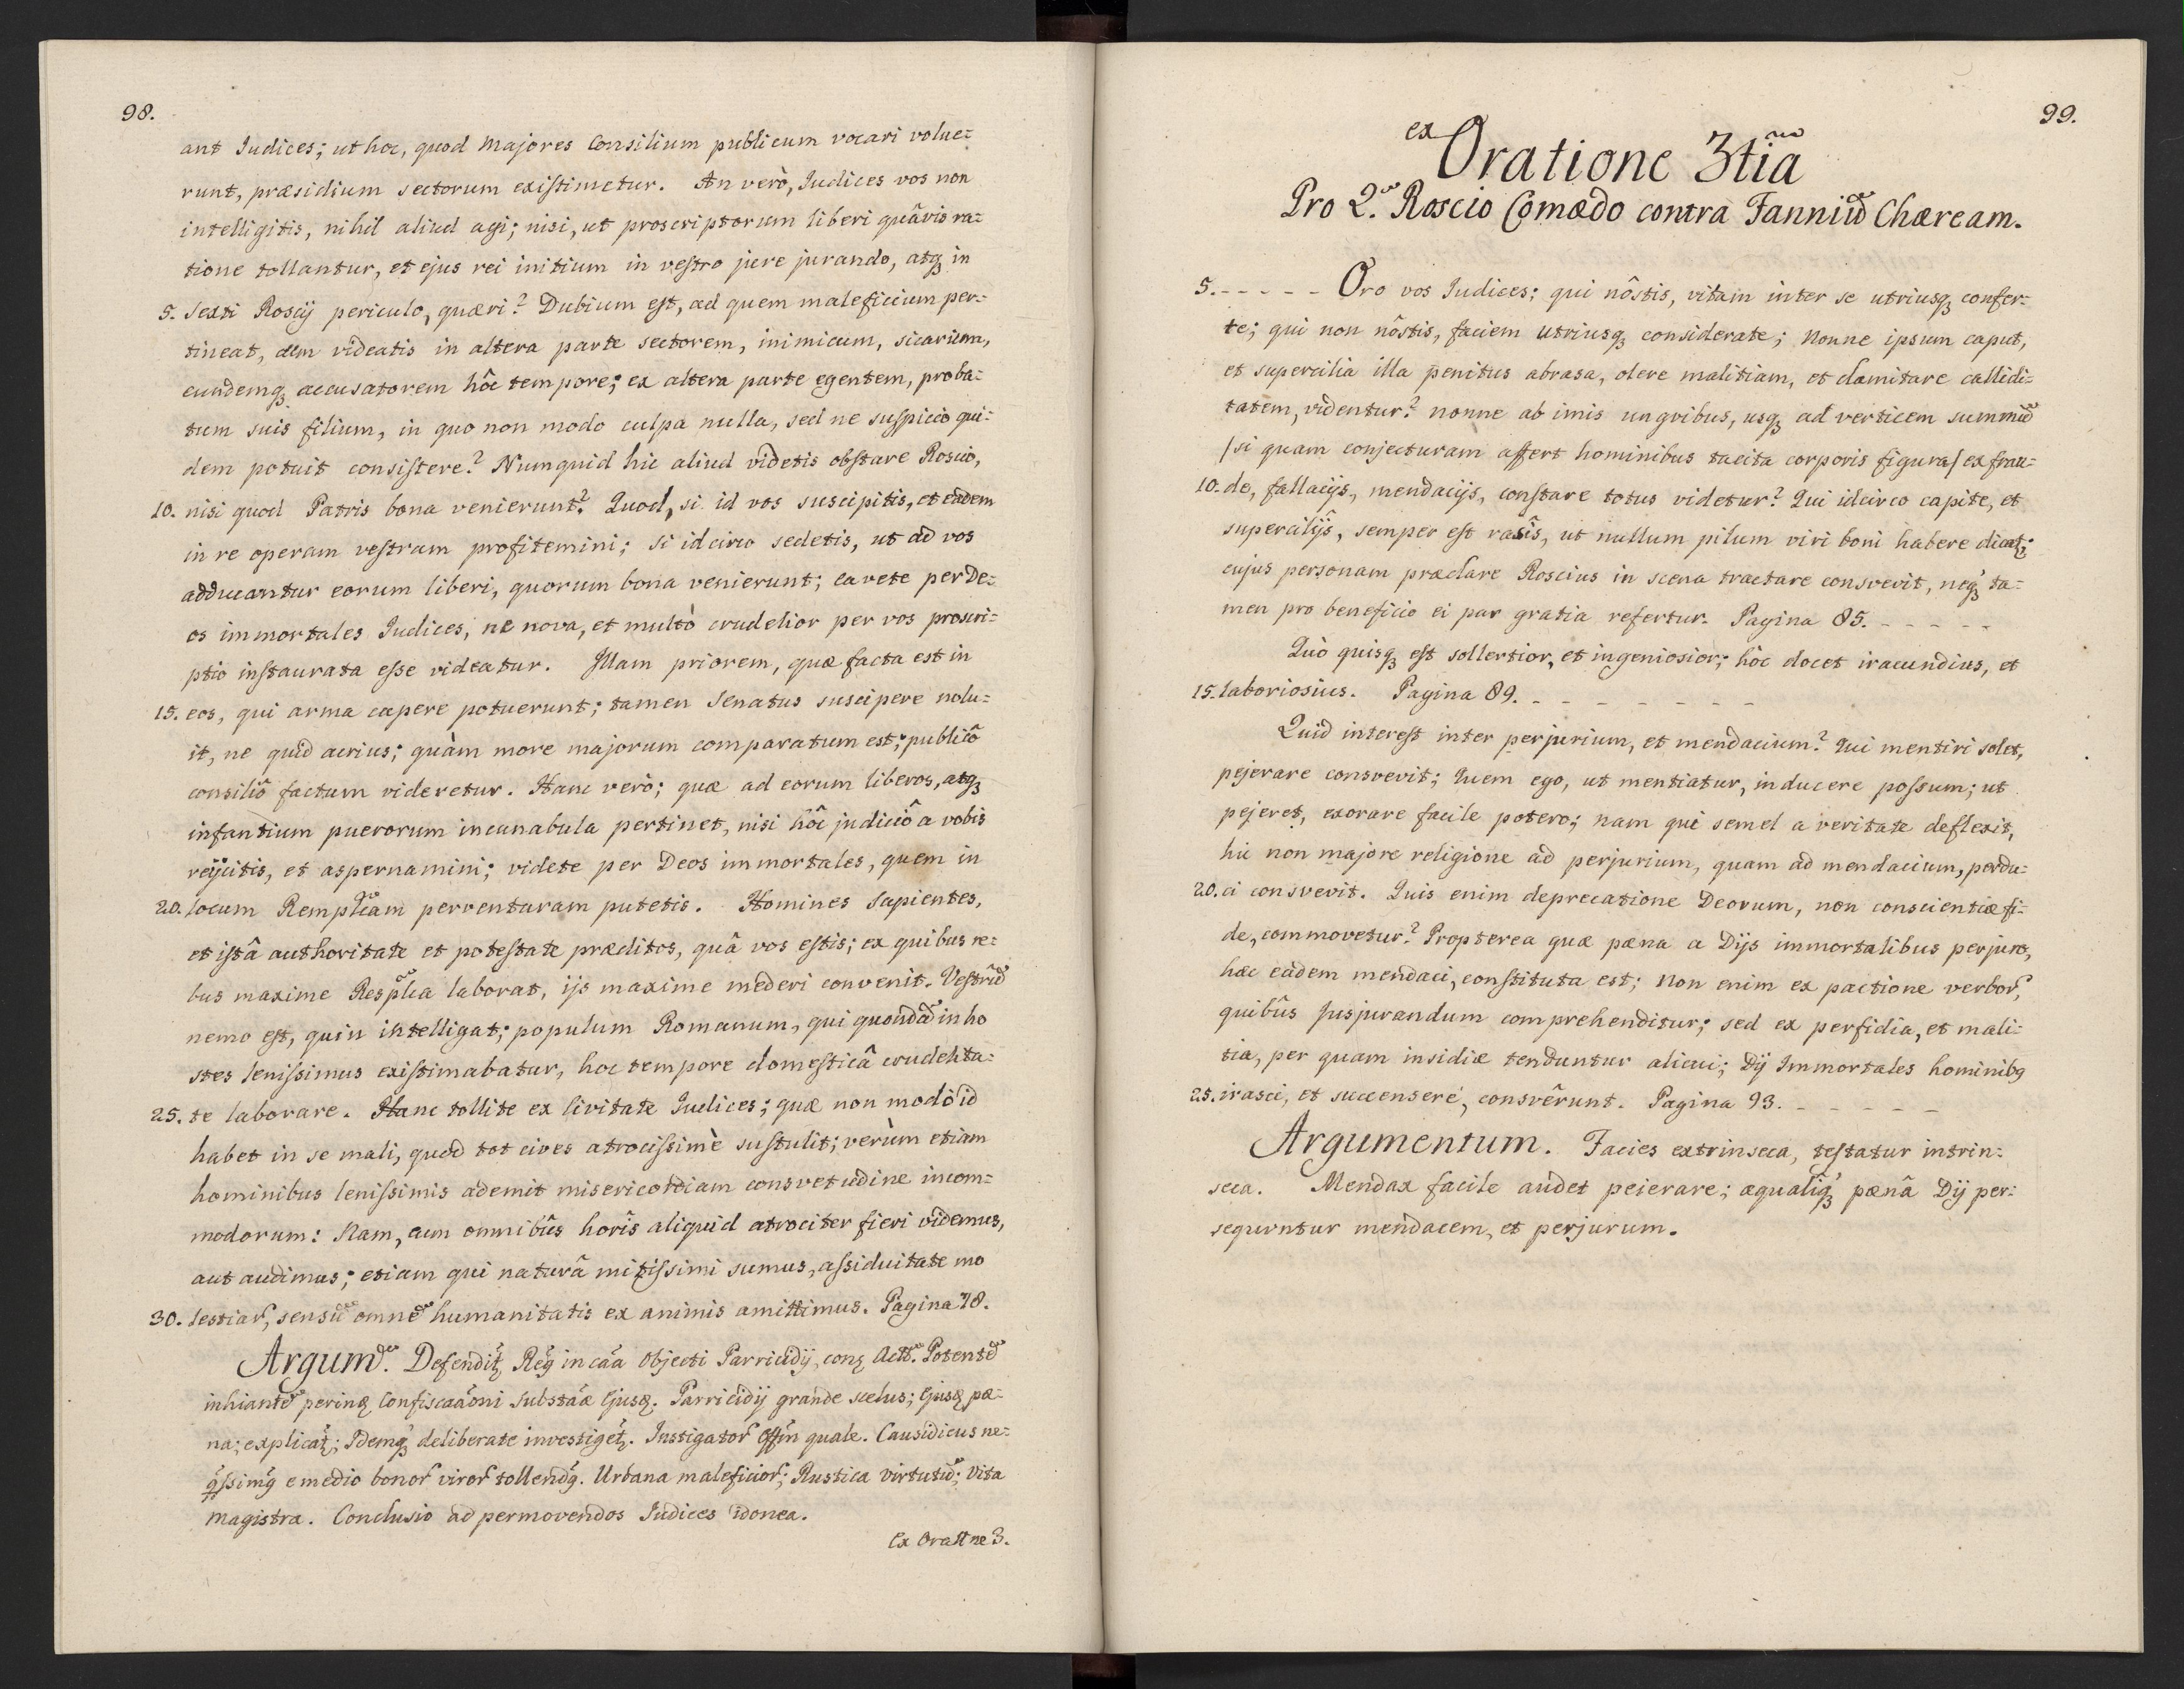 98.
ant Iudices; ut hoc, quod Majores Consilium publicum vocari volue=
runt, præsidium sectorum existimetur. An verò, Iudices vos non
intelligitis, nihil aliud agi; nisi, ut proscriptorum liberi quâvis ra=
tione tollantur, et ejus rei initium in vestro jure jurando, atq3 in
5. Sexti Roscij periculo, quæri? Dubium est, ad quem maleficium per=
tineat, cum videatis in altera parte sectorem, inimicum, sicarium,
eundemq3 accusatorem hôc tempore; ex altera parte egentem, proba=
tum suis filium, in quo non modo culpa nulla, sed ne suspicio qui=
dem potuit consistere? Numquid hic aliud videtis obstare Roscio,
10. nisi quod Patris bona venierunt? Quod, si id vos suscipitis, et eâdem
in re operam vestram profitemini; si idcirco sedetis, ut ad vos
adducantur eorum liberi, quorum bona venierunt; cavete per De=
os immortales Iudices, ne nova, et multò crudelior per vos proscri=
ptio instaurata esse videatur. Illam priorem, quæ facta est in
15. eos, qui arma capere potuerunt; tamen Senatus suscipere nolu=
it, ne quid acrius; quàm more majorum comparatum est; publicô
consiliô factum videretur. Hanc verò; quæ ad eorum liberos, atq3
infantium puerorum incunabula pertinet, nisi hôc judiciô a vobis
reijcitis, et aspernamini; videte per Deos immortales, quem in
20. locum Remplicam perventuram putetis. Homines Sapientes,
et istâ authoritate et potestate præditos, quâ vos estis; ex quibus re=
bus maxime Resplica laborat, ijs maxime mederi convenit. Vestrũ
nemo est, quin intelligat; populum Romanum, qui quondã in ho
stes lenissimus existimabatur, hoc tempore domesticâ crudelita=
25. te laborare. Hanc tollite ex Civitate Iudices; quæ non modò id
habet in se mali, quod tot cives atrocissimè sustulit; verùm etiam
hominibus lenissimis ademit misericordiam consvetudine incom=
modorum: Nam, cum omnibûs horîs aliquid atrociter fieri videmus,
aut audimus; etiam qui naturâ mitissimi sumus, assiduitate mo
30. lestiar, sensũ omnẽ humanitatis ex animis amittimus. Pagina 78.
Argum. Defendit Reg in caa Objecti Parricidij, Potentẽ
inhiantẽ Substaæ Parricidij grande scelus; pæ=
na; explicat; Idemq3 deliberate investiget. Instigator quale. Causidicus ne=
e medio bonor viror tollend. Urbana maleficior; Rustica virtutũ; Vita
magistra. Conclusio ad permovendos Iudices idonea.
Ex Oratne 3.
99.
ex Oratione 3tia
Pro Q. Roscio Comædo contra Fanniũ Chæream.
5. - - - - - Oro vos Iudices; qui nôstis, vitam inter se utriusq3 confer=
te; qui non nôstis, faciem utriusq3 considerate; Nonne ipsum caput,
et supercilia illa penitus abrasa, olere malitiam, et clamitare callidi=
tatem, videntur? nonne ab imis ungvibus, usq3 ad verticem summũ
/si quam conjecturam affert hominibus tacita corporis figura/ ex frau=
10. de, fallacijs, mendacijs, constare totus videtur? Qui idcirco capite, et
supercilijs, semper est rasîs, ut nullum pilum viri boni habere dicat;
cujus personam præclare Roscius in scena tractare consvevit, neq3 ta=
men pro beneficio ei par gratia refertur. Pagina 85. - - - - -
Quò quisq3 est sollertior, et ingeniosior; hôc docet iracundius, et
15. laboriosius. Pagina 89. - - - - - - -
Quid interest inter perjurium, et mendacium? Qui mentiri solet,
pejerare consvevit; Quem ego, ut mentiatur, inducere possum; ut
pejeret, exorare facile potero; nam qui semel a veritate deflexit,
hic non majore religione ad perjurium, quam ad mendacium, perdu=
20. ci consvevit. Quis enim deprecatione Deorum, non conscientiæ fi=
de, commovetur? Propterea quæ pæna a Dijs immortalibus perjuro,
hæc eadem mendaci, constituta est; Non enim ex pactione verbor,
quibûs jusjurandum comprehenditur; sed ex perfidia, et mali=
tia, per quam insidiæ tenduntur alicui; Dij Immortales hominibq
25. irasci, et succensere, consvêrunt. Pagina 93. - - - - -
Argumentum. Facies extrinseca, testatur intrin=
seca. Mendax facile audet peierare; æqualiq3 pænâ Dij per=
sequuntur mendacem, et perjurum.